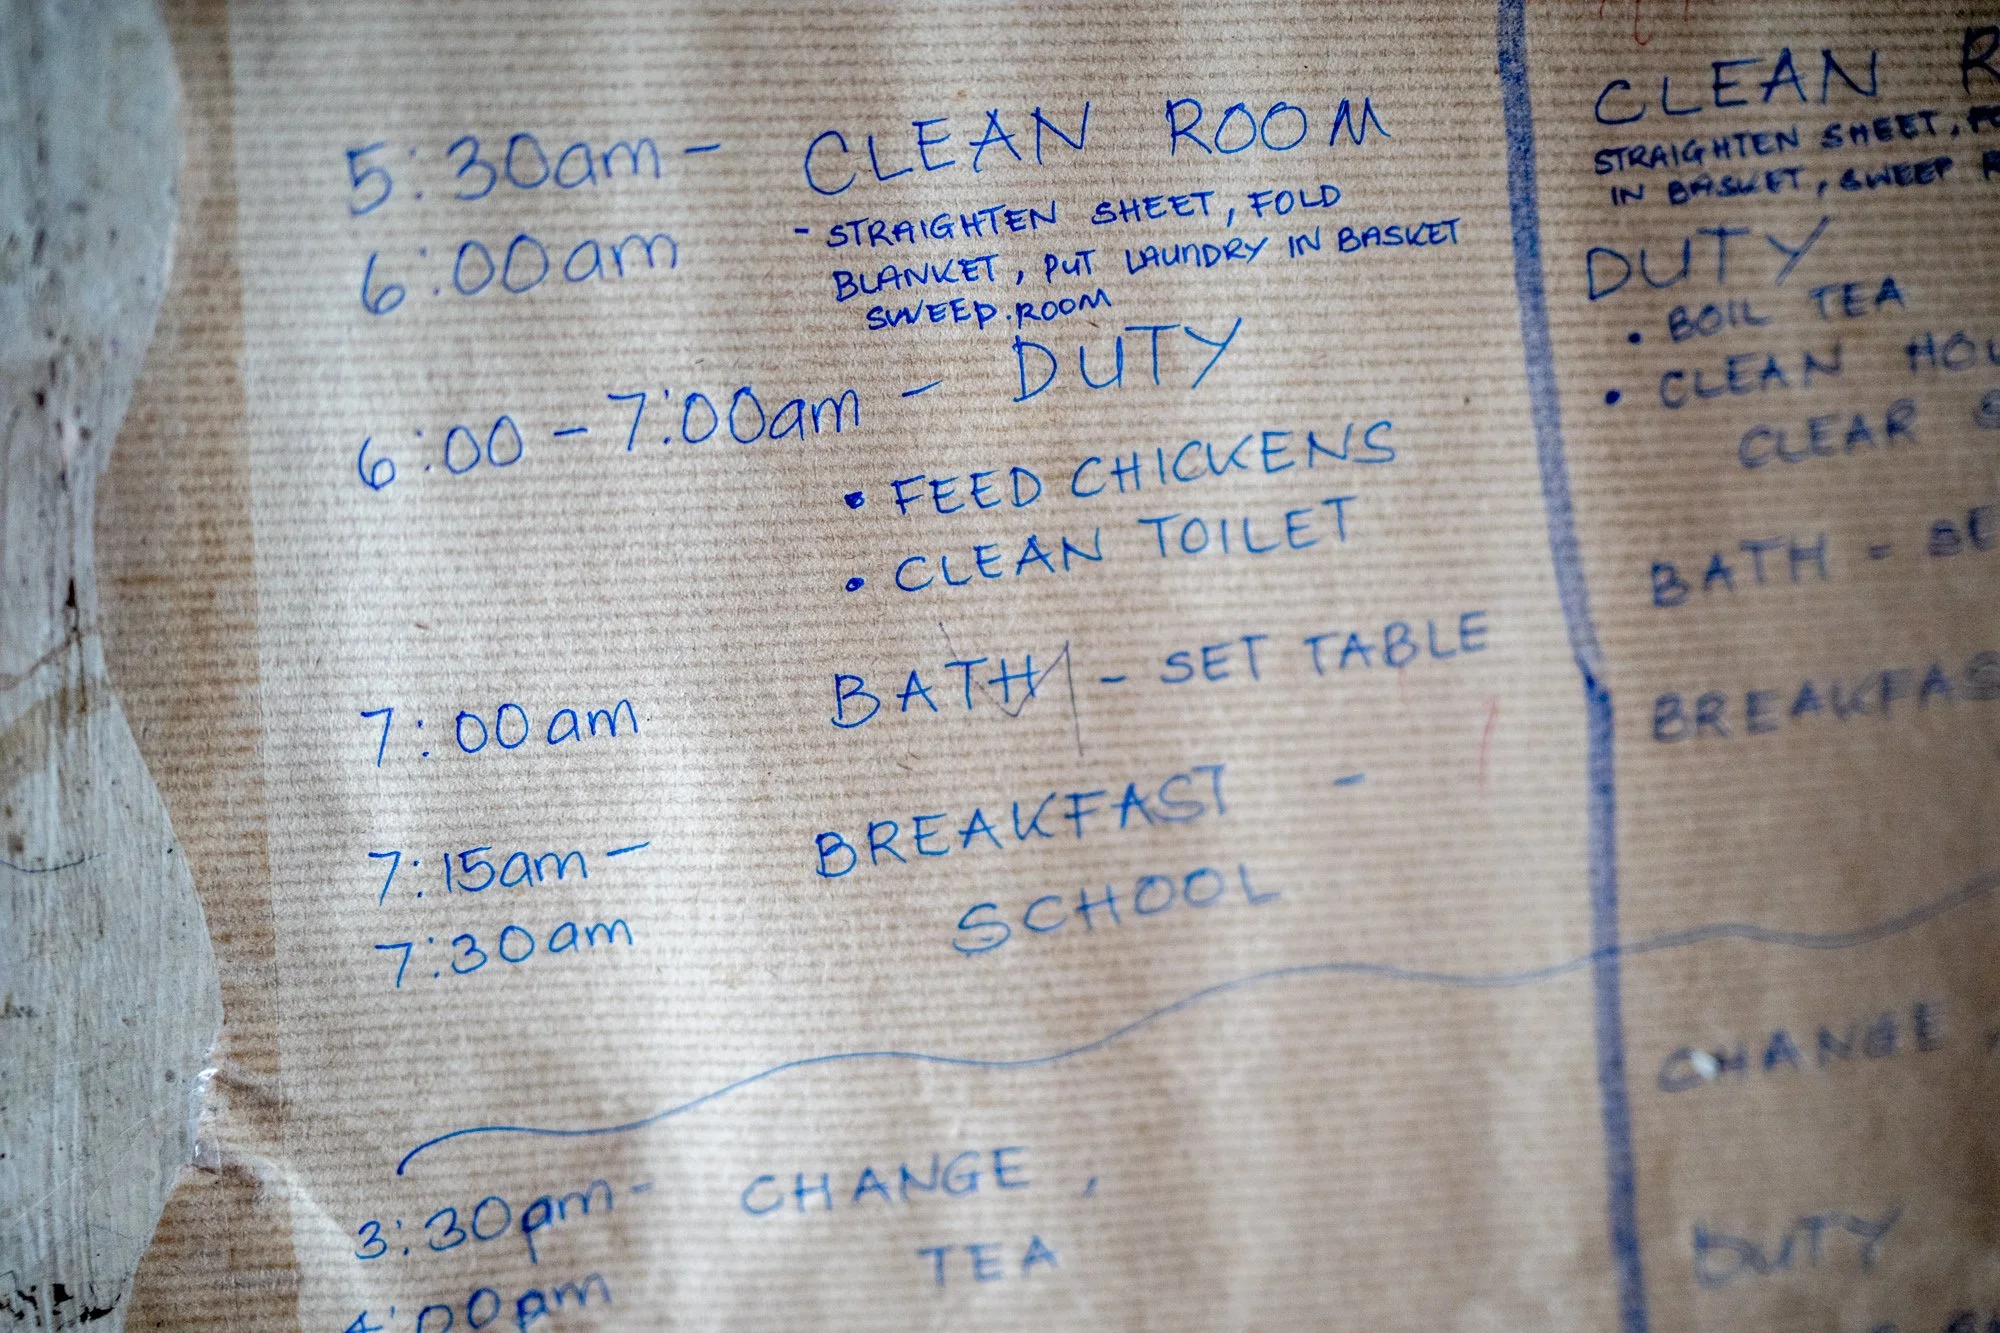 5:30am - CLEAN ROOM
6:00am - STRAIGHTEN SHEET, FOLD
BLANKET, PUT LAUNDRY IN BASKET
SWEEP.ROOM
6:00 - 7:00am - DUTY
• FEED CHICKENS
• CLEAN TOILET
7:00am BATH - SET TABLE
7:15am - BREAKFAST -
7:30am SCHOOL
3:30pm - CHANGE,
TEA
4:00pm
CLEAN
STRAIGHTEN SHEET,
IN BASKET, SWEEP
DUTY
• BOIL TEA
• CLEAN
CLEAR
BATH -
BREAKFAS
CHANGE,
DUTY